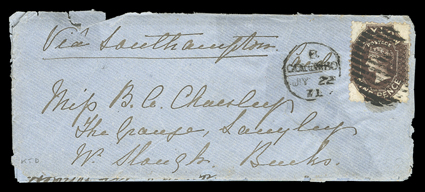 Via Southampton
B
COLOMBO
JY 22
71
POSTAGE
PENCE
Miss B. C. Chaerley
The Grange, Langley
Nr. Slough. Bucks.